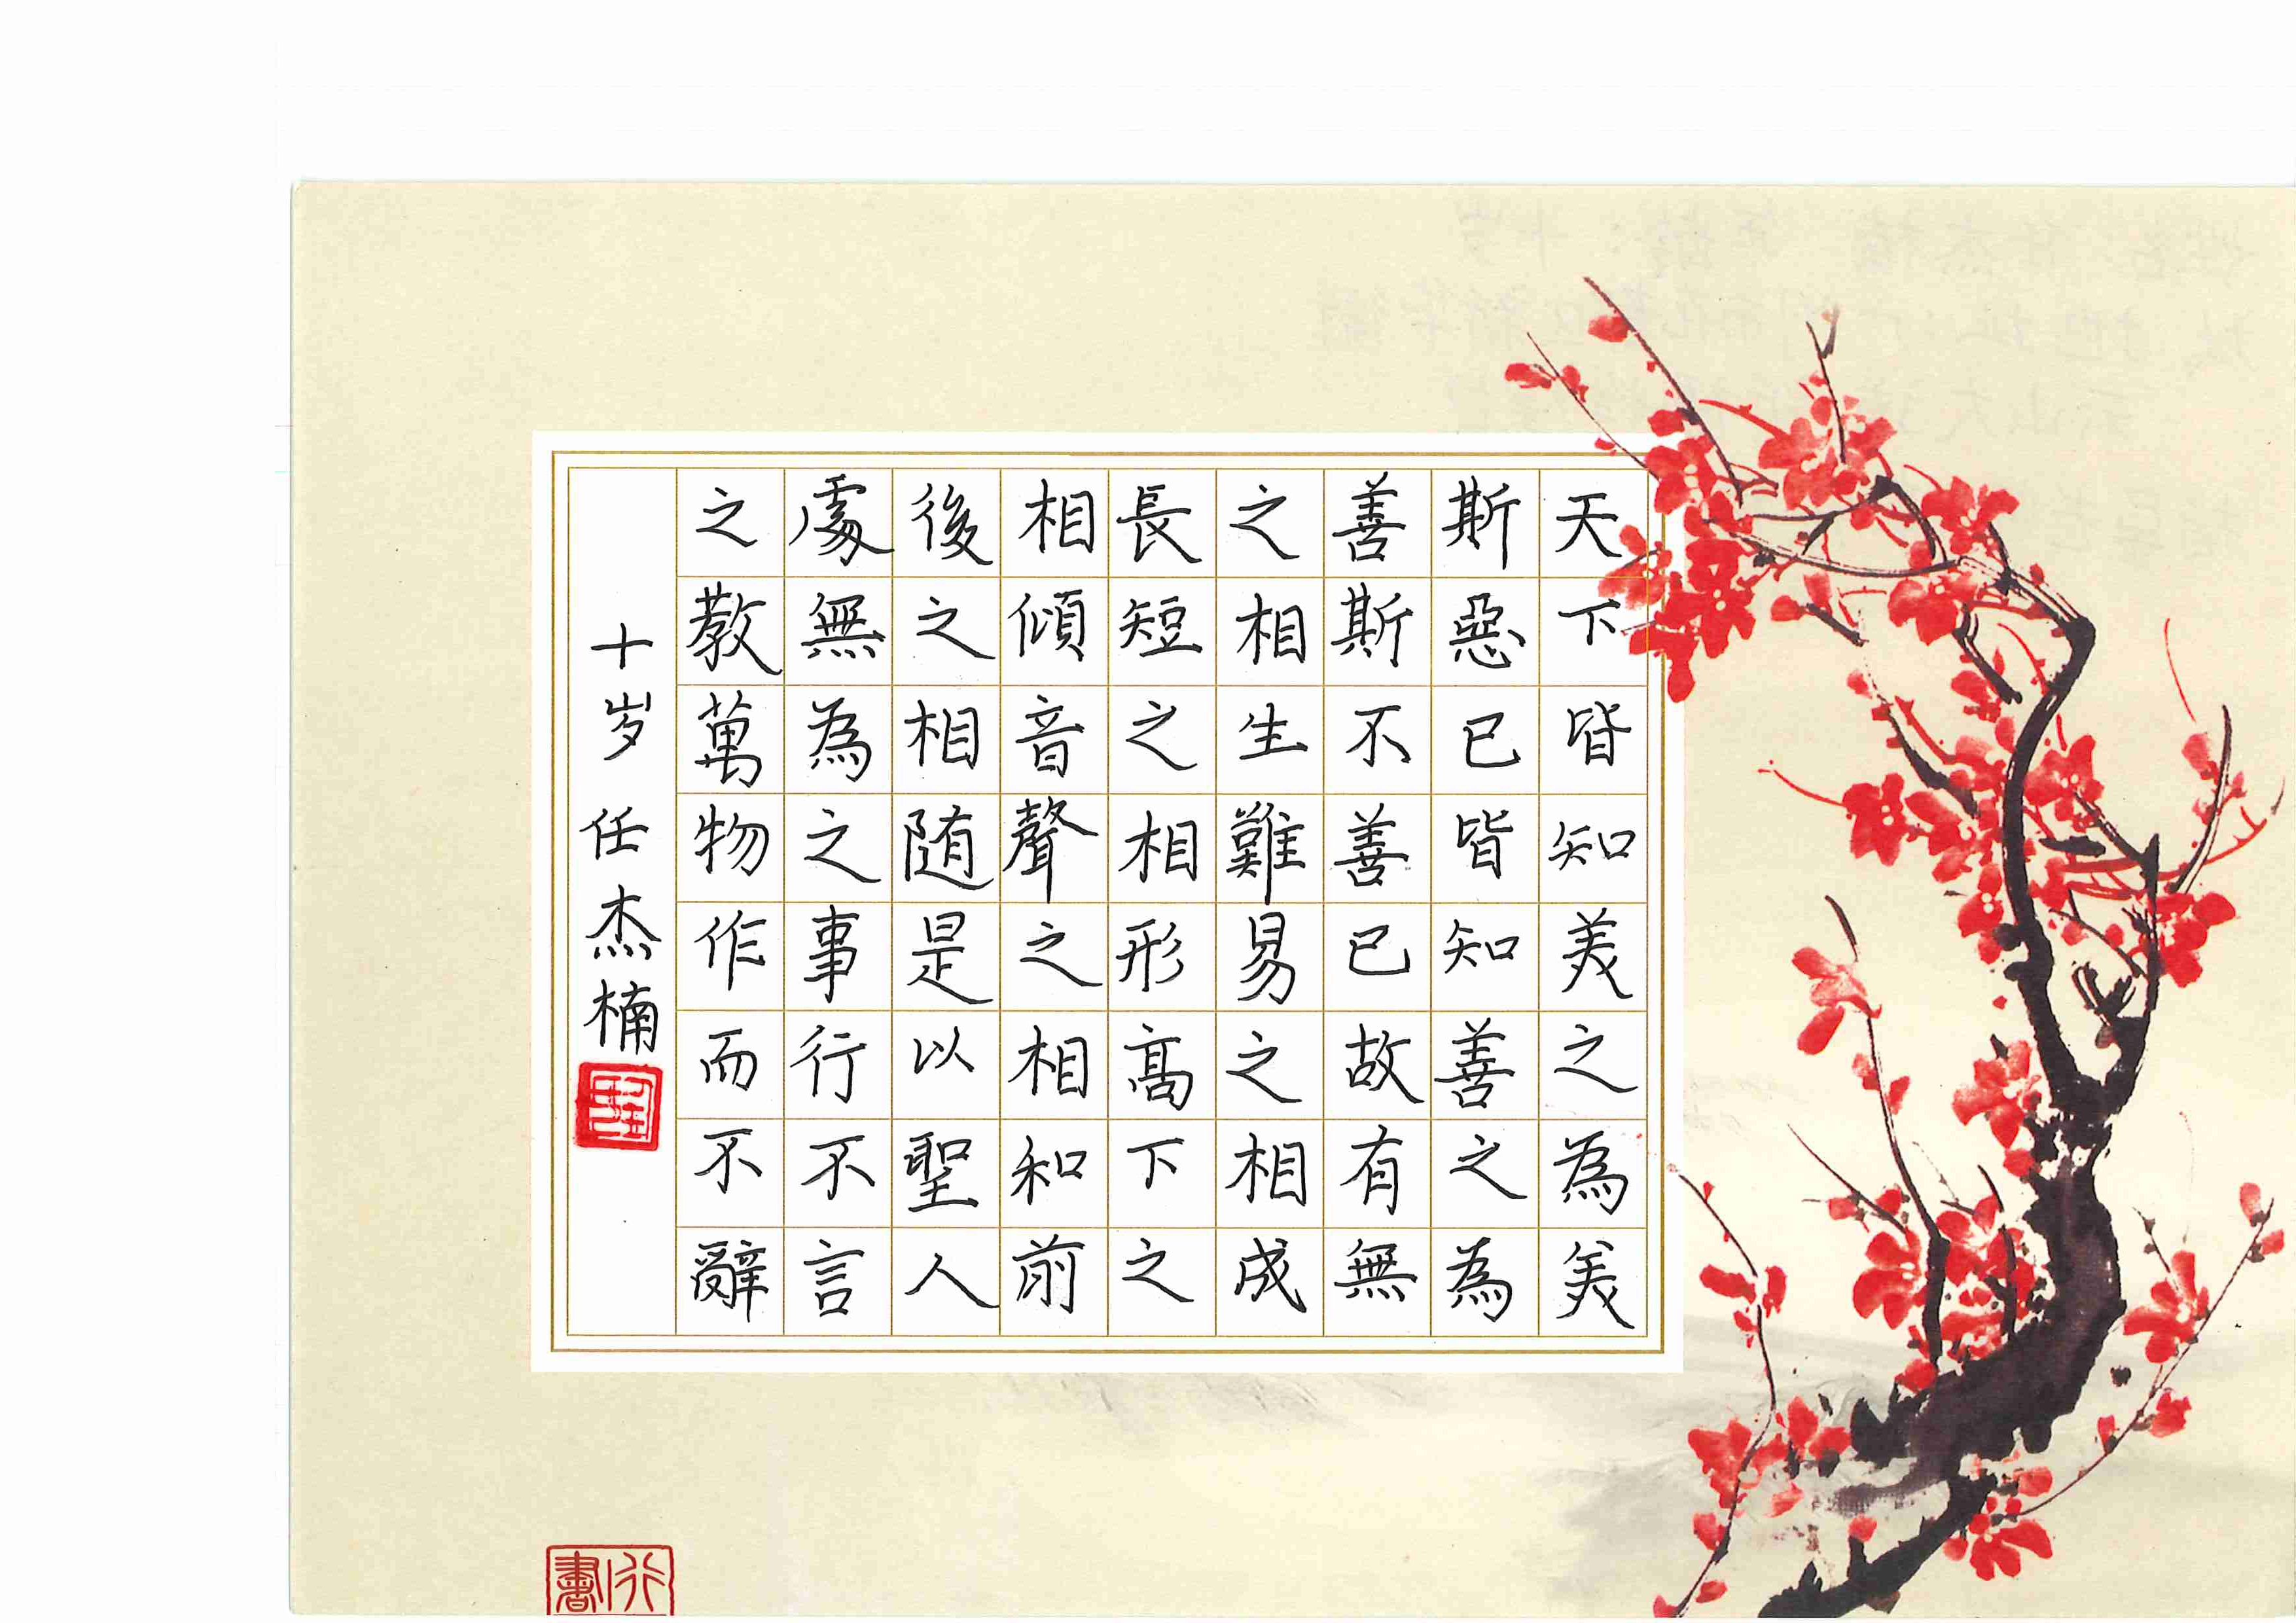 天下皆知美之為美
斯惡已皆知善之為
善斯不善已故有無
之相生難易之相成
長短之相形高下之
相傾音聲之相和前
後之相随是以聖人
處無為之事行不言
之教萬物作而不辭
十岁 任杰楠
行書